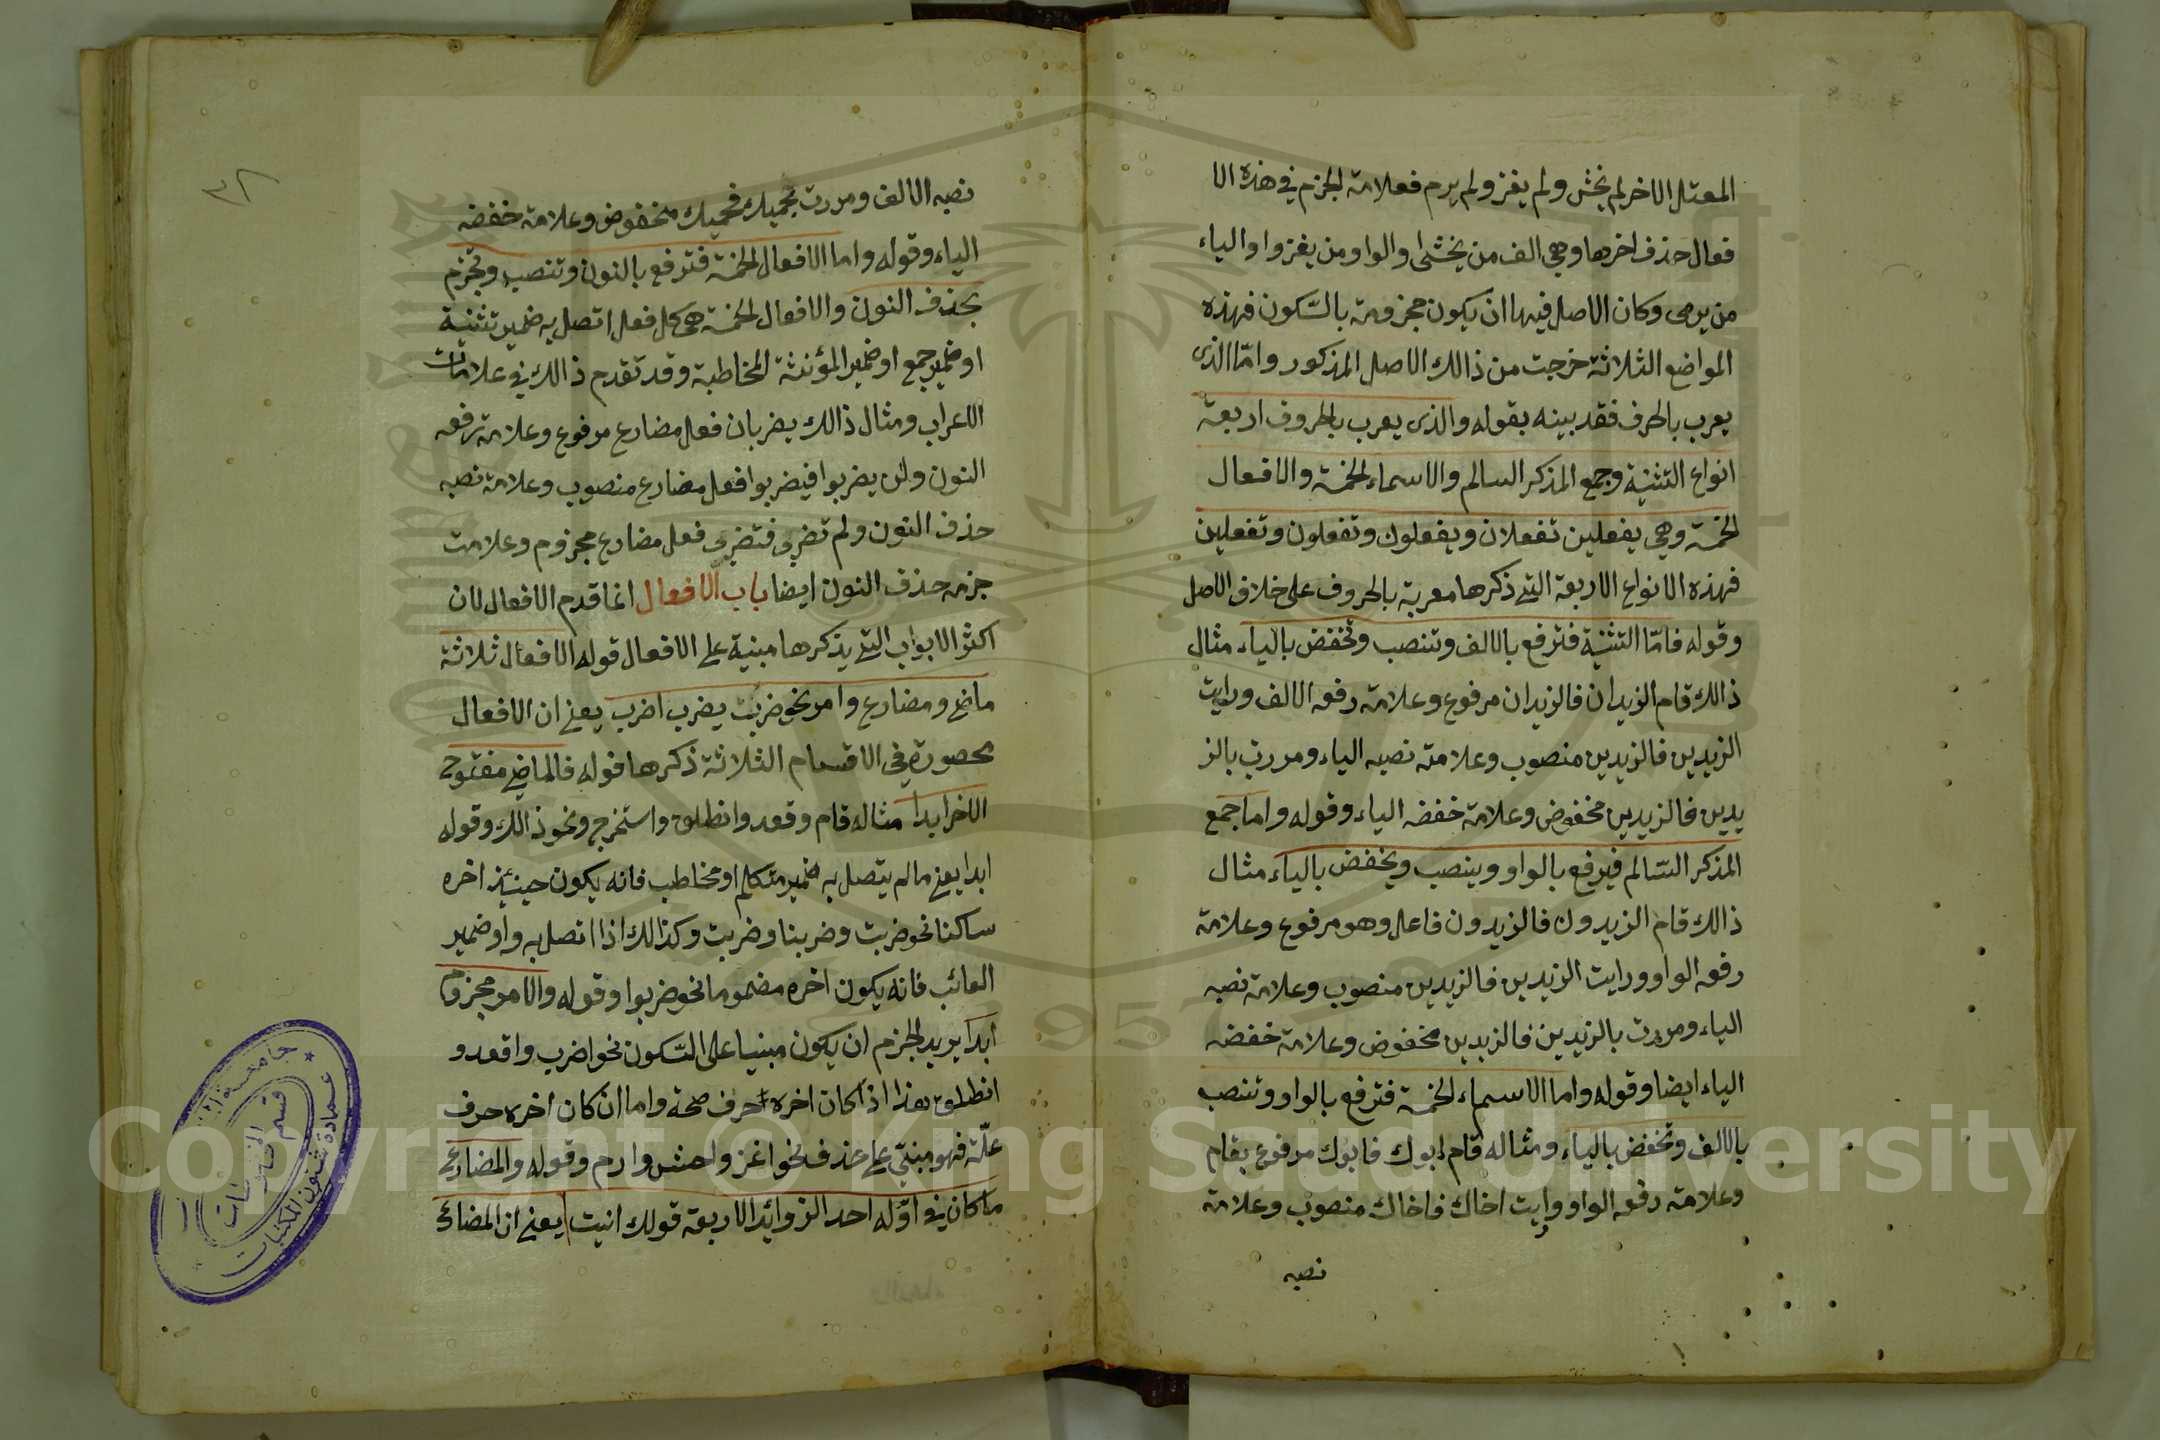 المعتل الاخر لم يخش ولم يغز ولم يرم فعلامة الجزم في هذه الا
فعال حذف اخرها وهي الف من يخشى والواو من يغزوا والياء
من يرمى وكان الاصل فيها ان يكون مجزومة بالسّكون فهذه
المواضع الثلاثة خرجت من ذالك الاصل المذكور وامّا الذى
يعرب بالحرف فقد بينه بقوله والذى يعرب بالحروف اربعة
انواع التثنية وجمع المذكر السالم والاسماء الخمسة والافعال
الخمسة وهي يفعلين تفعلان ويفعلون وتفعلون وتفعلين
فهذه الانواع الاربعة التي ذكرها معربة بالحروف على خلاف الاصل
وقوله فامّا التثنية فترفع بالالف وتنصب وتخفض بالياء مثال
ذالك قام الزيدان فالزيدان مرفوع وعلامة رفعه الالف ورايت
الزيدين فالزيدين منصوب وعلامة نصبه الياء ومررت بالز
يدين فالزيدين مخفوض وعلامة خفضه الياء وقوله واما جمع
المذكر السّالم فيرفع بالواو وينصب ويخفض بالياء مثال
ذالك قام الزيدون فالزيدون فاعل وهو مرفوع وعلامة
رفعه الواو ورايت الزيدين فالزيدين منصوب وعلامة نصبه
الياء ومررت بالزيدين فالزيدين مخفوض وعلامة خفضه
الياء ايضا وقوله واما الاسماء الخمسة فترفع بالواو وتنصب
بالالف وتخفض بالياء ومثاله قام ابوك فابوك مرفوع بقام
وعلامة رفعه الواو ورايت اخاك فاخاك منصوب وعلامة
نصبه
٣٨
نصبه الالف ومررت بحميك فحميك مخفوض وعلامة خفضه
الياء وقوله واما الافعال الخمسة فترفع بالنون وتنصب وتجزم
بحذف النون والافعال الخمسة هي كل فعل اتصل به ضمير تثنية
او ضمير جمع او ضمير المؤنثة المخاطبة وقد تقدم ذالك في علامات
الاعراب ومثال ذالك يضربان فعل مضارع مرفوع وعلامة رفعه
النون ولن يضربوا فيضربوا فعل مضارع منصوب وعلامة نصبه
حذف النون ولم تضربى فتضربى فعل مضارع مجزوم وعلامت
جزمه حذف النون ايضا باب الافعال انما قدم الافعال لان
اكثر الابواب التي يذكرها مبنية على الافعال قوله الافعال ثلاثة
ماض ومضارع وامر نحو ضرب يضرب اضرب يعني ان الافعال
محصورة في الاقسام الثلاثة ذكرها قوله فالماضي مفتوح
الاخر ابدا مثاله قام وقعد وانطلق واستخرج ونحو ذالك وقوله
ابدا يعني مالم يتصل به ضمير متكلم او مخاطب فانه يكون حينئذ اخره
ساكنا نحو ضربت وضربنا وضربت وكذالك اذا اتصل به واو ضمير
الغائب فانه يكون اخره مضموما نحو ضربوا وقوله والامر مجزوم
ابدا يريد الجزم ان يكون مبنيا على السّكون نحو اضرب واقعد و
انطلق هذا اذا كان اخره حرف صحة واما ان كان اخره حرف
علّة فهو مبنيّ على حذف نحو اغز واخش وارم وقوله والمضارع
ما كان في اوّله احد الزوائد الاربعة قولك انيت يعني ان المضارع
جامعة
عمادة شئون المكتبات
قسم
Copyright © King Saud University
1957